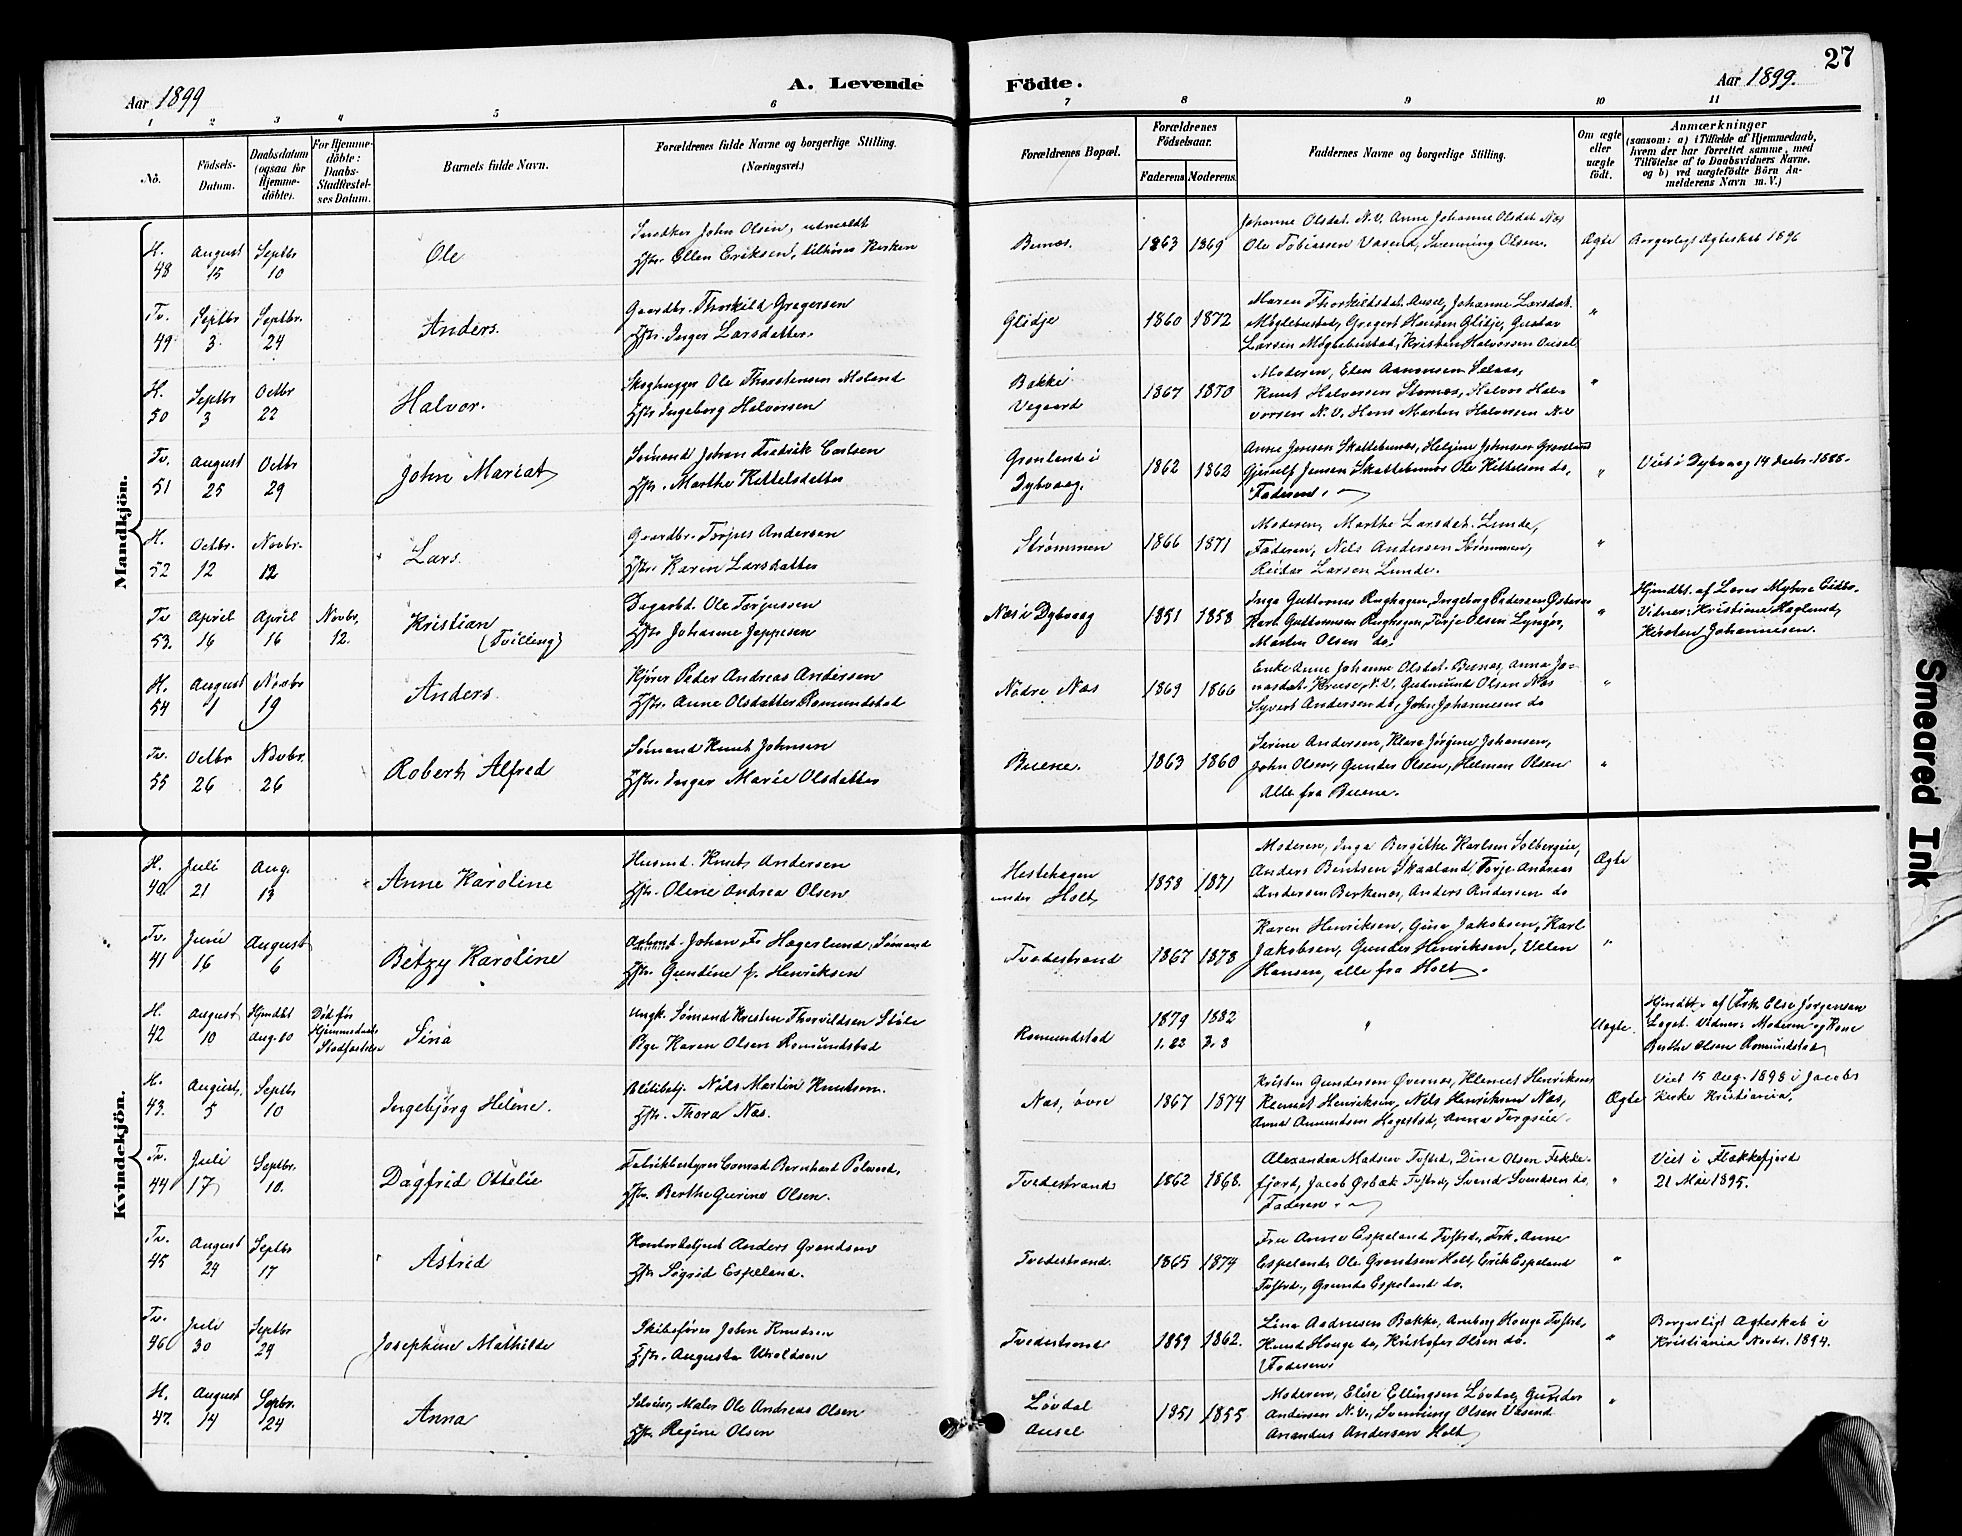 27
Aar 1899
A. Levende
Födte.
Aar 1899.
1 2 3 4 5 6 7 8 9 10 11
No.
Födsels-
Datum.
Daabsdatum
(ogsaa for
Hjemme-
döbte).
For Hjemme-
döbte:
Daabs-
Stadfæstel-
ses Datum.
Barnets fulde Navn.
Forældrenes fulde Navne og borgerlige Stilling.
(Næringsvei.)
Forældrenes Bopæl.
Forældrenes
Födselsaar.
Faderens
Moderens.
Faddernes Navne og borgerlige Stilling.
Om ægte
eller
uægte
födt.
Anmærkninger
(saasom: a) i Tilfælde af Hjemmedaab,
hvem der har forrettet samme, med
Tilföielse af to Daabsvidners Navne.
og b) ved uægtefödte Börn An-
melderens Navn m. V.)
Mandkjön.
H.
48
August
15
Septbr
10
Ole
Snedker John Olsen, udmeldt
Hstr. Ellen Eriksen, tilhører Kirken
Bunæs.
1863
1869
Johanne Olsdat. N.V. Anne Johanne Olsdat Næs
Ole Tobiassen Vasend, Svenning Olsen.
Ægte
Borgerligt Ægteskab 1896
Tv.
49
Septbr
3
Septbr.
24
Anders.
Gaardbr. Thorkild Gregersen
Hstr. Inger Larsdatter.
Glidje
1860
1872
Maren Thorkildsdat. Ausel, Johanne Larsdat.
Møglebustad, Gregert Hansen Glidje, Gustav
Larsen Møglebustad, Kristen Halvorsen Ausel
"
H.
50
Septbr
3
Octbr
22
Halvor.
Skoghugger Ole Thorstensen Moland
Hstr Ingeborg Halvorsen
Bakke
Vegaard
1867
1870
Moderen, Elen Aanonsen Selaas,
Knut Halvorsen Stornæs, Halvor Hal-
vorsen N.V. Hans Martin Halvorsen N.V
"
Tv.
51
August
25
Octbr
29
John Mariat
Sømand Johan Fredrik Carlsen
Hstr. Marthe Kittelsdatter
Grønland i
Dybvaag.
1862
1862
Anne Jensen Skattebunæs, Helgine Johnsen Grønland
Gjerulf Jensen Skattebunæs Ole Kittelsen do,
Faderen.
"
Viet i Dybvaag 14 Decbr. 1888.
H.
52
Octbr.
12
Novbr.
12
Lars.
Gaardbr. Torjus Andersen
Hstr. Karen Larsdatter
Strømmen
1866
1871
Moderen, Marthe Larsdat. Lunde,
Faderen, Nils Andersen Strømmen,
Reidar Larsen Lunde.
"
Tv
53.
April
16
April
16
Novbr,
12.
Kristian
(Tvilling)
Dagarbd. Ole Torjussen
Hstr Johanne Jeppesen
Næs i Dybvaag
1851
1858
Inga Guttormsen Rughagen, Ingeborg Pedersen Østeraa
Karl Guttormsen Rughagen, Torje Olsen Lyngør,
Martin Olsen do,
"
Hjmdbt. af Lars Myhre Eidbo.
Vidner: Kristine Haglund,
Kirsten Johannesen.
H.
54
August
1
Novbr
19
Anders.
Kjører Peder Andreas Andersen
Hstr. Anne Olsdatter Romundstad
Nedre Næs
1869
1866
Enke Anne Johanne Olsdat. Bunæs, Anna Jo-
nasdat. Kruse, N.V. Gudmund Olsen Næs
Syvert Andersen do, John Johannesen do
"
Tv.
55
Octbr
26
Novbr.
26
Robert Alfred
Sømand Knut Johnsen
Hstr. Inger Marie Olsdatter
Buene.
1863
1860
Serine Andersen, Klara Jørgine Johansen,
John Olsen, Gunder Olsen, Helman Olsen
Alle fra Buene.
"
Kvindekjön.
H.
40.
Juli
21
Aug.
13
Anne Karoline
Husmd. Knut Andersen
Hstr. Oline Andrea Olsen
Hestehagen
under Holt,
1858
1871
Moderen, Inga Bergithe Karlsen Solbergeie,
Anders Bentsen Skaaland, Torje Andreas
Andersen Berkenes, Anders Andersen do
Ægte
Tv.
41
Juni
16
August
6
Betzy Karoline
Arbmd. Johan Fr Hægerlund, Sømand
Hstr. Gundine f. Henriksen
Tvedestrand
1867
1878
Karen Henriksen, Gina Jakobsen, Karl
Jakobsen, Gunder Henriksen, Velen
Hansen, alle fra Holt.
"
H.
42
August
10
Hjmdbt
Aug. 10
Død før
Hjemmedaab
Stadfæstelse
Sina
Ungk. Sømand Kristen Thorvildsen Støle
Pige Karen Olsen Romundstad
Romundstad
1879
1. 22
1882
3. 3
"
Uægte.
Hjmdbt. af Frk. Else Jørgensen
Laget. Vidner: Moderen og Kone
Berthe Olsen Romundstad
H.
43.
August,
5
Septbr
10
Ingebjørg Helene.
Hstr. Thora Næs.
Næs, øvre
1867
1874
Kristen Gundersen Øvernæs, Klemet Henriksen
Klemet Henriksen, Nils Henriksen Næs,
Anna Amundsen Hagestad, Anna Torgseie.
Ægte
Viet 15 Aug. 1898 i Jacobs
Kirke Kristiania,
Tv.
44
Juli
17
Septbr.
10.
Dagfrid Ottelie
Fabrikbestyrer Conrad Bernhart
Hstr. Berthe Gurine Olsen.
Tvedestrand
1862
1868.
Alexandra Madsen Tvstrd, Dina Olsen Flekke-
fjord, Jacob Ørbæk Tvstrd, Svend Svendsen do.
Faderen.
"
Viet i Flekkefjord
21 Mai 1895.
Tv.
45
August
24
Septbr
17
Astrid
Kontorbetjent Anders Grændsen
Hstr Sigrid Espeland.
Tvedestrand.
1865
1874
Fru Anna Espeland Tvstrd, Frk. Anne
Espeland, Ole Grændsen Holt, Erik Espeland
Tvstrd., Gunda Espeland do.
"
Tv.
46
Juli
30
Septbr
24
Josephine Mathilde
Skibsfører John Knudsen
Hstr. Augusta
Tvedestrand
1859
1862.
Lina Aadnesen Bakke, Amborg Houge Tvstrd,
Knud Houge do, Kristofer Olsen do.
Faderen.
"
Borgerligt Ægteskab i
Kristiania Novbr. 1894.
H.
47.
August
14
Sepbr.
24
Anna
Maler Ole Andreas Olsen
Hstr. Regine Olsen
Løvdal
Ausel
1851
1855
Moderen, Elise Ellingsen Løvdal, Gunder
Andersen N.V., Svenning Olsen Vasend
Anandus Andersen Holt,
"
Smeared Ink